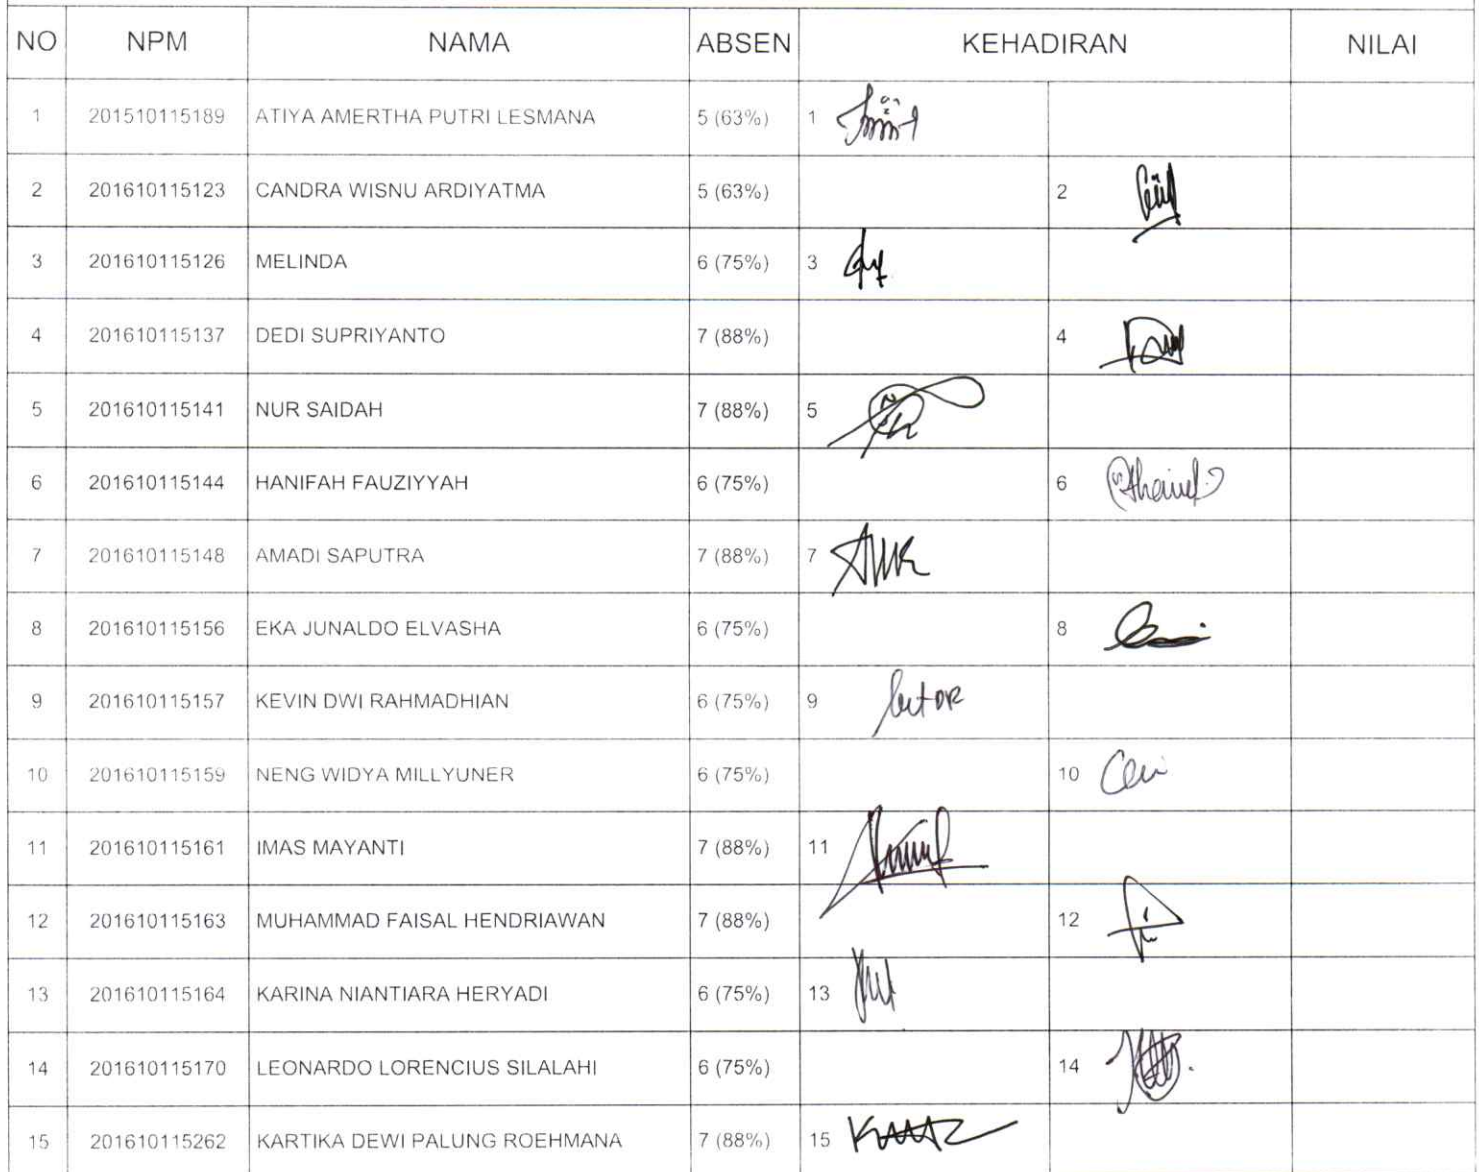 NO NPM NAMA ABSEN KEHADIRAN NILAI
1 201510115189 ATIYA AMERTHA PUTRI LESMANA 5 (63%) 1
2 201610115123 CANDRA WISNU ARDIYATMA 5 (63%) 2
3 201610115126 MELINDA 6 (75%) 3
4 201610115137 DEDI SUPRIYANTO 7 (88%) 4
5 201610115141 NUR SAIDAH 7 (88%) 5
6 201610115144 HANIFAH FAUZIYYAH 6 (75%) 6
7 201610115148 AMADI SAPUTRA 7 (88%) 7
8 201610115156 EKA JUNALDO ELVASHA 6 (75%) 8
9 201610115157 KEVIN DWI RAHMADHIAN 6 (75%) 9
10 201610115159 NENG WIDYA MILLYUNER 6 (75%) 10
11 201610115161 IMAS MAYANTI 7 (88%) 11
12 201610115163 MUHAMMAD FAISAL HENDRIAWAN 7 (88%) 12
13 201610115164 KARINA NIANTIARA HERYADI 6 (75%) 13
14 201610115170 LEONARDO LORENCIUS SILALAHI 6 (75%) 14
15 201610115262 KARTIKA DEWI PALUNG ROEHMANA 7 (88%) 15